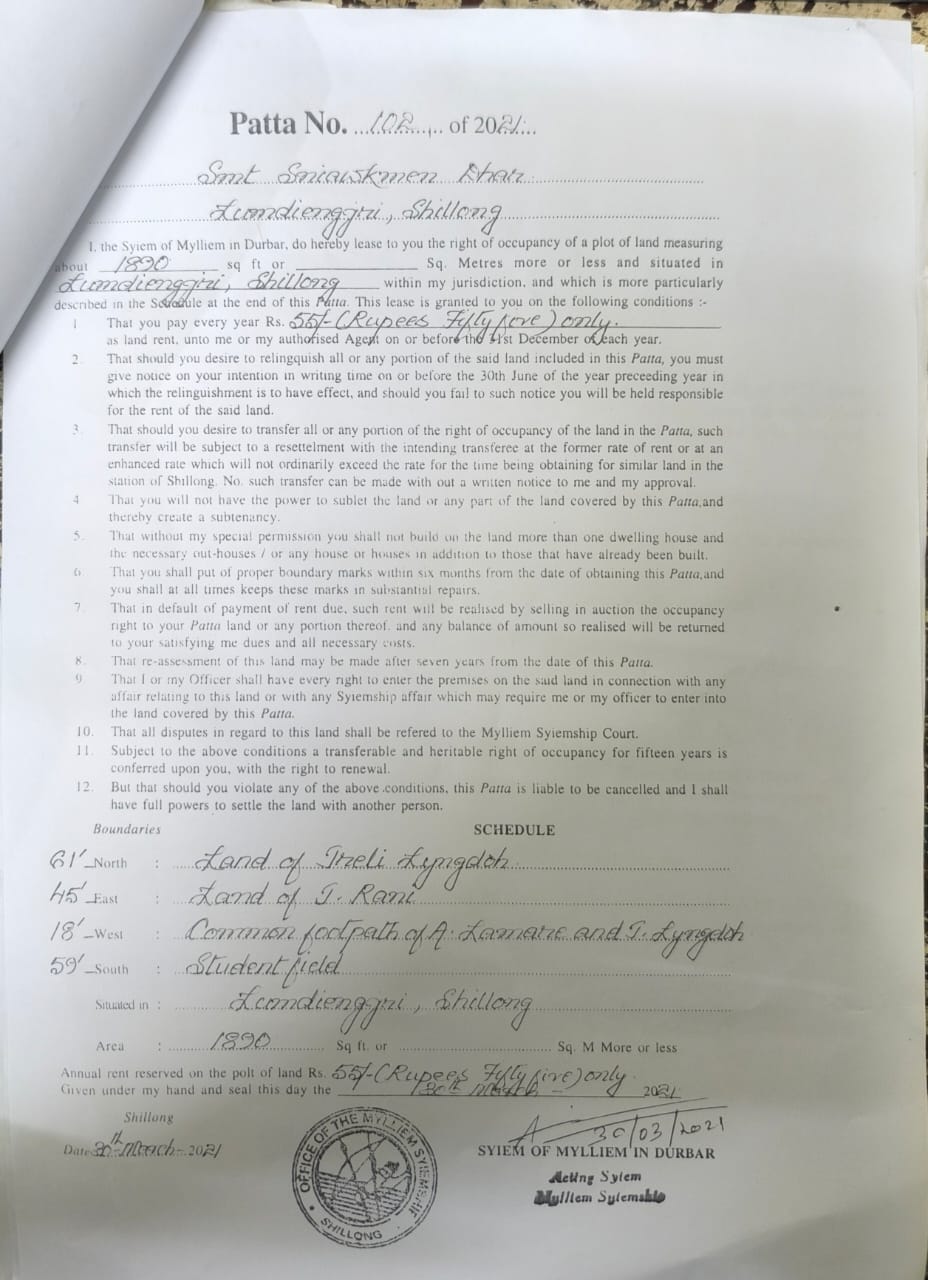 Patta No. 102 of 2021
Smt Sniawskmen Dhar
Lumdiengjri, Shillong
I, the Syiem of Mylliem in Durbar, do hereby lease to you the right of occupancy of a plot of land measuring
about 1890 sq ft or ______ Sq. Metres more or less and situated in
Lumdiengjri, Shillong within my jurisdiction, and which is more particularly
described in the Schedule at the end of this Patta. This lease is granted to you on the following conditions :-
1 That you pay every year Rs. 55/- (Rupees Fifty five) only.
as land rent, unto me or my authorised Agent on or before the 31st December of each year.
2. That should you desire to relingquish all or any portion of the said land included in this Patta, you must
give notice on your intention in writing time on or before the 30th June of the year preceeding year in
which the relinguishment is to have effect, and should you fail to such notice you will be held responsible
for the rent of the said land.
3. That should you desire to transfer all or any portion of the right of occupancy of the land in the Patta, such
transfer will be subject to a resettelment with the intending transferee at the former rate of rent or at an
enhanced rate which will not ordinarily exceed the rate for the time being obtaining for similar land in the
station of Shillong. No. such transfer can be made with out a written notice to me and my approval.
4 That you will not have the power to sublet the land or any part of the land covered by this Patta,and
thereby create a subtenancy.
5. That without my special permission you shall not build on the land more than one dwelling house and
the necessary out-houses / or any house or houses in addition to those that have already been built.
6. That you shall put of proper boundary marks within six months from the date of obtaining this Patta,and
you shall at all times keeps these marks in substantial repairs.
7. That in default of payment of rent due, such rent will be realised by selling in auction the occupancy
right to your Patta land or any portion thereof. and any balance of amount so realised will be returned
to your satisfying me dues and all necessary costs.
8. That re-assessment of this land may be made after seven years from the date of this Patta.
9 That I or my Officer shall have every right to enter the premises on the said land in connection with any
affair relating to this land or with any Syiemship affair which may require me or my officer to enter into
the land covered by this Patta.
10. That all disputes in regard to this land shall be refered to the Mylliem Syiemship Court.
11. Subject to the above conditions a transferable and heritable right of occupancy for fifteen years is
conferred upon you, with the right to renewal.
12. But that should you violate any of the above conditions, this Patta is liable to be cancelled and I shall
have full powers to settle the land with another person.
Boundaries SCHEDULE
61' North : Land of Treli Lyngdoh
45' East : Land of T. Rani
18' West : Common footpath of A. Lamare and T. Lyngdoh
59' South : Student field
Situated in : Lumdiengjri, Shillong
Area : 1890 Sq ft. or ...... Sq. M More or less
Annual rent reserved on the polt of land Rs. 55/- (Rupees Fifty five) only.
Given under my hand and seal this day the 30th March - 2021
Shillong
Date 30th March - 2021
30/03/2021
SYIEM OF MYLLIEM IN DURBAR
Acting Syiem
Mylliem Syiemship
OFFICE OF THE MYLLIEM SYIEMSHIP
SHILLONG